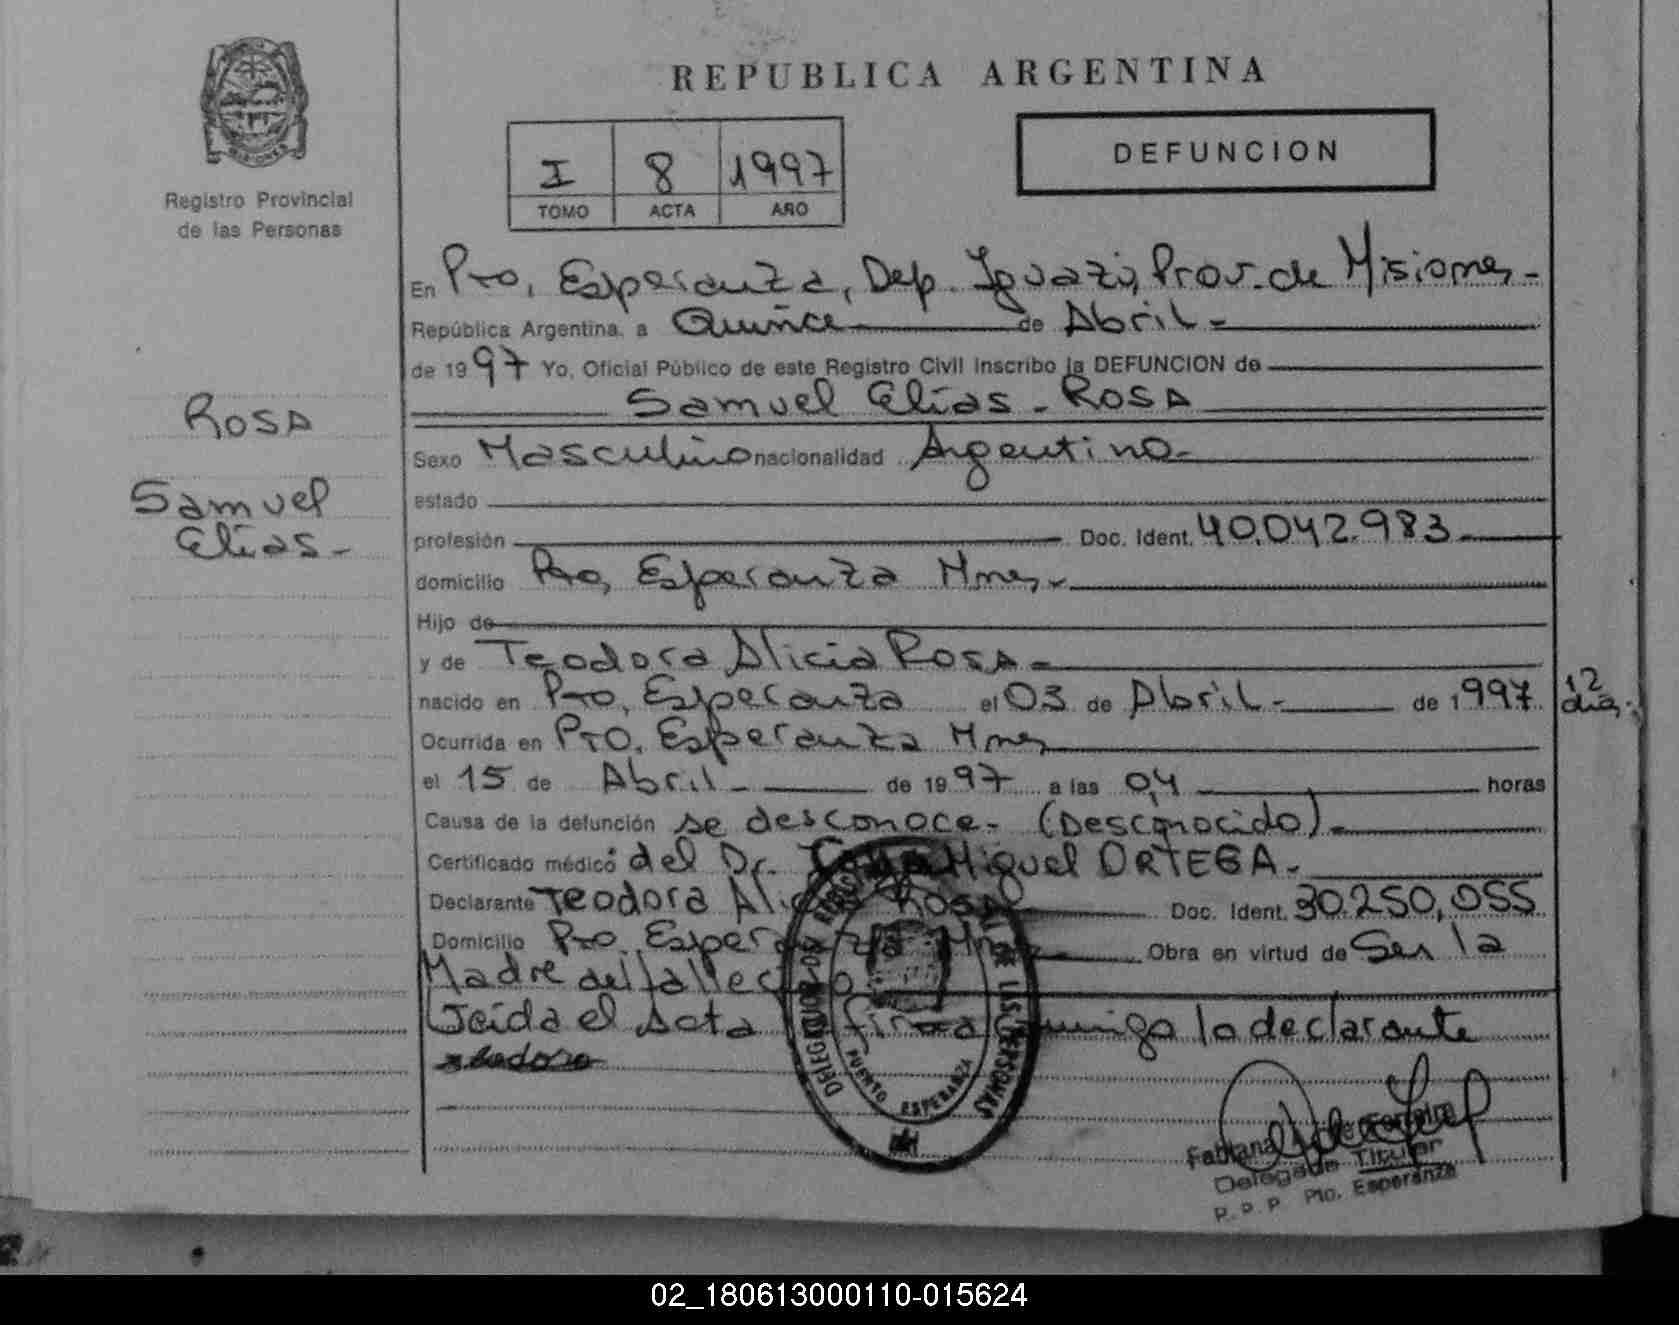 REPUBLICA ARGENTINA
MISIONES
Registro Provincial
de las Personas
I 8 1997
TOMO ACTA AÑO
DEFUNCION
En Pto, Esperanza, Dep. Iguazú, Prov. de Misiones -
República Argentina, a Quince de Abril -
de 1997 Yo, Oficial Público de este Registro Civil Inscribo la DEFUNCION de
Samuel Elías - ROSA
ROSA
Samuel
Elías -
Sexo Masculino nacionalidad Argentina -
estado
profesión Doc. Ident. 40.042.983 -
domicilio Pto, Esperanza Mnes -
Hijo de
y de Teodora Alicia Rosa -
nacido en Pto, Esperanza el 03 de Abril - de 1997 12 días
Ocurrida en Pto. Esperanza Mnes
el 15 de Abril - de 1997 a las 04 horas
Causa de la defunción se desconoce - (Desconocido) -
Certificado médico del Dr. Miguel ORTEGA -
Declarante Teodora Alicia Rosa Doc. Ident. 30.250,055
Domicilio Pto, Esperanza Mnes Obra en virtud de Ser la
Madre del fallecido
Leida el Acta firma conmigo la declarante
DE LAS PERSONAS
PUERTO ESPERANZA
Fabiana
Delegada Titular
R. P. P. Pto. Esperanza
02_180613000110-015624